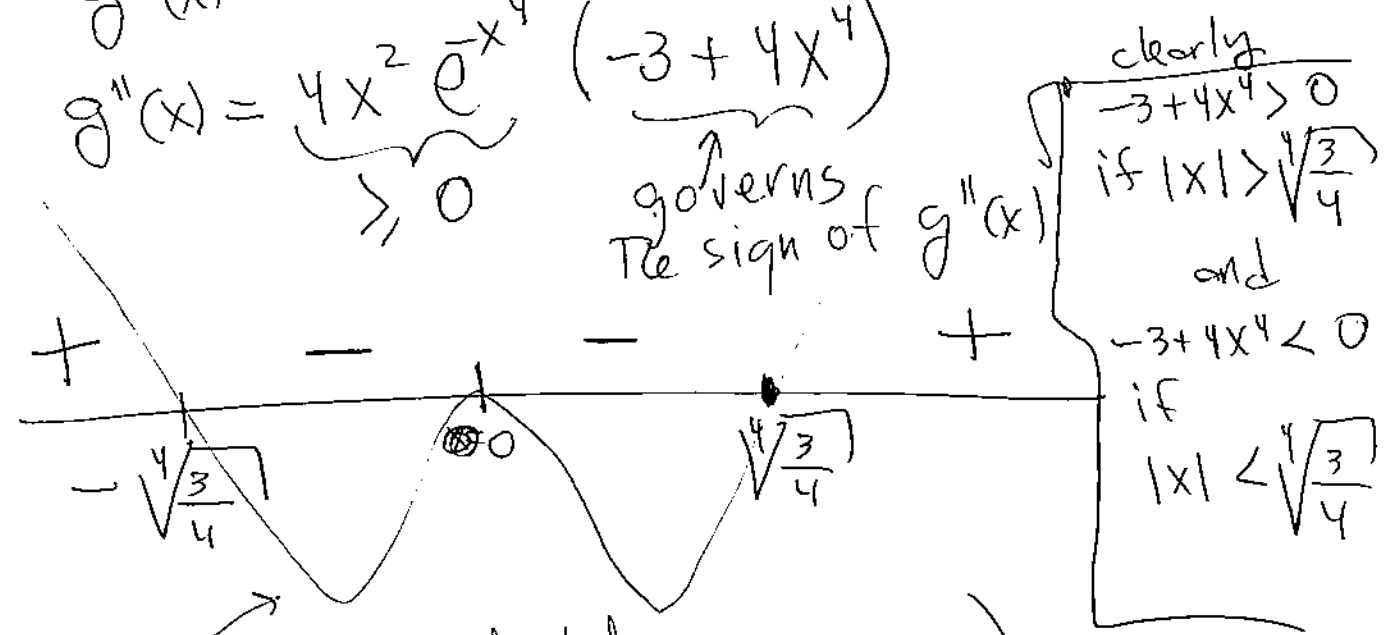 g''(x) = 4x² e^{-x⁴} (-3 + 4x⁴)
≥ 0
governs
The sign of g''(x)
clearly
-3+4x⁴> 0
if |x| > ∜(3/4)
and
-3+4x⁴ < 0
if
|x| < ∜(3/4)
+ − − +
-∜(3/4) 0 ∜(3/4)